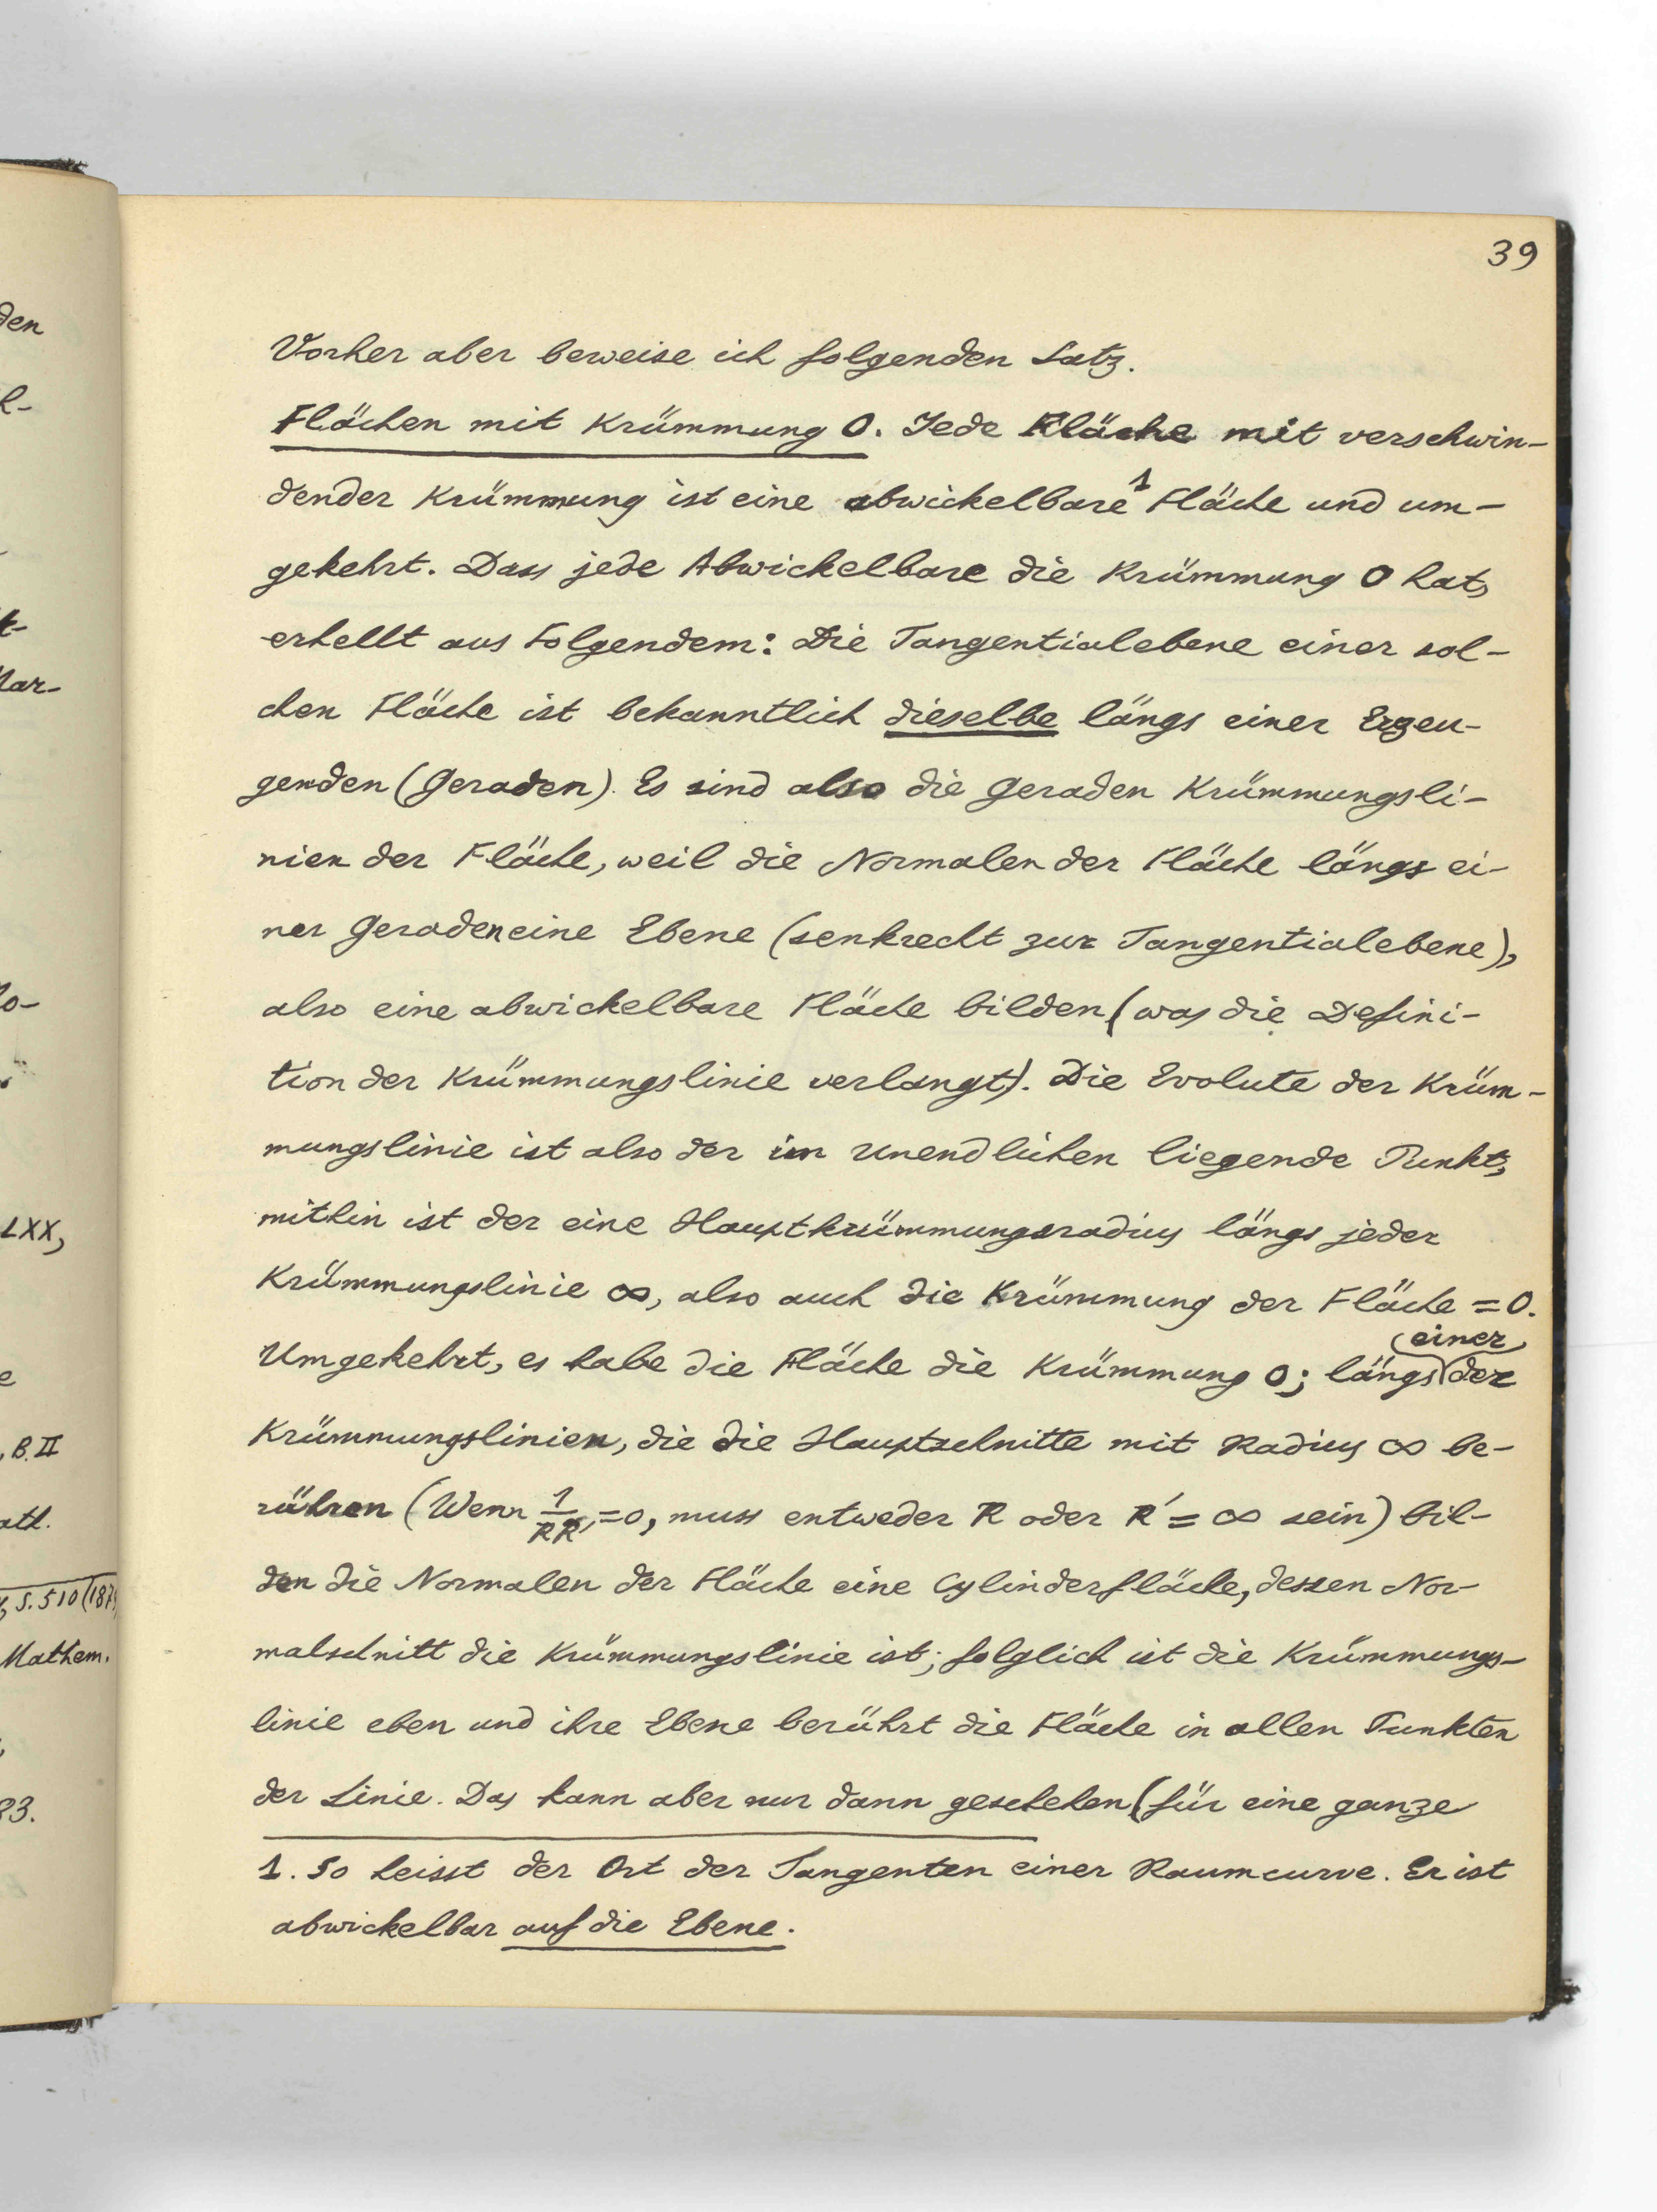 39
Vorher aber beweise ich folgenden Satz.
Flächen mit Krümmung 0. Jede Fläche mit verschwin-
dender Krümmung ist eine abwickelbare¹ Fläche und um-
gekehrt. Dass jede Abwickelbare die Krümmung 0 hat,
erhellt aus Folgendem: Die Tangentialebene einer sol-
chen Fläche ist bekanntlich dieselbe längs einer Erzeu-
genden (Geraden). Es sind also die Geraden Krümmungsli-
nien der Fläche, weil die Normalen der Fläche längs ei-
ner Geraden eine Ebene (senkrecht zur Tangentialebene),
also eine abwickelbare Fläche bilden (was die Defini-
tion der Krümmungslinie verlangt). Die Evolute der Krüm-
mungslinie ist also der im Unendlichen liegende Punkt,
mithin ist der eine Hauptkrümmungsradius längs jeder
Krümmungslinie ∞, also auch die Krümmung der Fläche = 0.
einer
Umgekehrt, es habe die Fläche die Krümmung 0; längs der
Krümmungslinien, die die Hauptschnitte mit Radius ∞ be-
rühren (Wenn 1/RR' = 0, muss entweder R oder R' = ∞ sein) bil-
den die Normalen der Fläche eine Cylinderfläche, dessen Nor-
malschnitt die Krümmungslinie ist; folglich ist die Krümmungs-
linie eben und ihre Ebene berührt die Fläche in allen Punkten
der Linie. Das kann aber nur dann geschehen (für eine ganze
1. So heisst der Ort der Tangenten einer Raumcurve. Er ist
abwickelbar auf die Ebene.
den
t-
Mar-
LXX,
, B. II
S. 510
Mathem.
83.